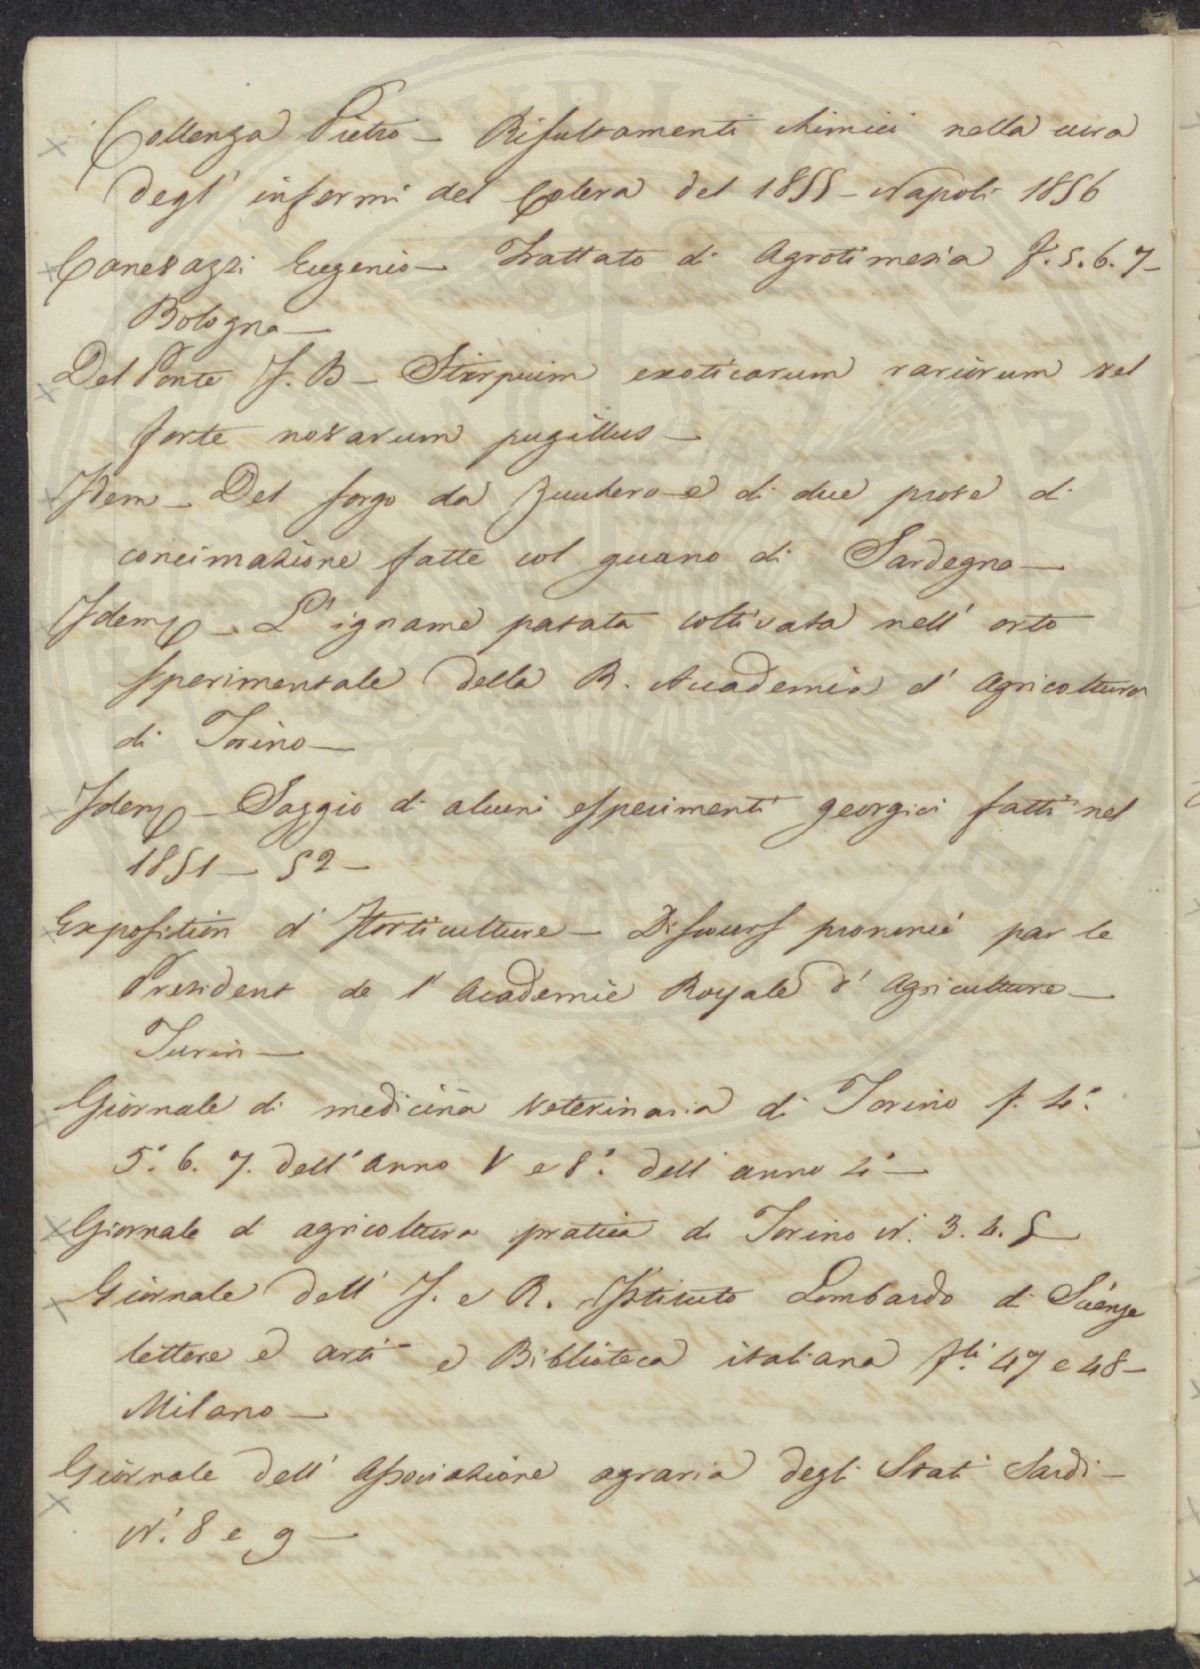 Collenza Pietro – Risultamenti chimici nella cura
degl' infermi del Colera del 1855 – Napoli 1856
Canevazzi Eugenio – Trattato di Agrotimesia F. 5. 6. 7 –
Bologna –
Del Ponte J. B – Stirpium exoticarum rariorum vel
forte novarum pugillus –
Idem – Del sorgo da Zucchero e di due prove di
concimazione fatte col guano di Sardegna –
Idem – L' igname patata coltivata nell' orto
sperimentale della R. Accademia d' Agricoltura
di Torino –
Idem – Saggio di alcuni esperimenti georgici fatti nel
1851 – 52 –
Exposition d' Horticulture – Discours prononcé par le
President de l' Academie Royale d' Agriculture –
Turin –
Giornale di medicina Veterinaria di Torino f. 4.°
5.° 6. 7. dell' anno V e 8.° dell' anno 4° –
Giornale d agricoltura pratica di Torino N. 3. 4. 5
Giornale dell' I. e R. Istituto Lombardo di Scienze
lettere e arti e Biblioteca italiana f.li 47 e 48 –
Milano –
Giornale dell' Associazione agraria degli Stati Sardi –
N.i 8 e 9 –